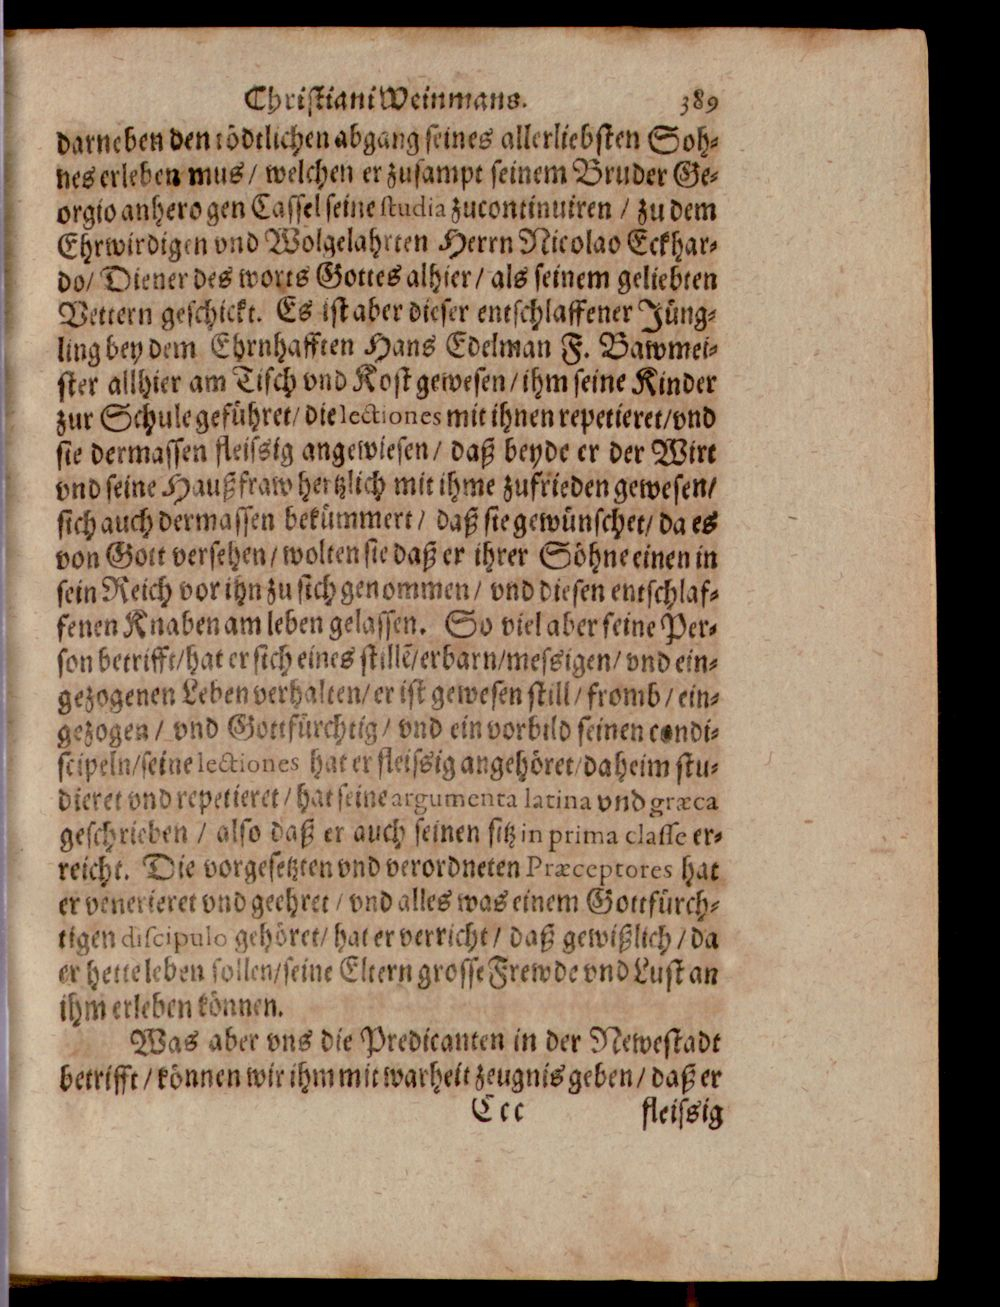 Christiani Weinmans. 389
darneben den tödtlichen abgang seines allerliebsten Soh-
nes erleben mus/ welchen er zusampt seinem Bruder Ge-
orgio anhero gen Cassel seine studia zucontinuiren / zu dem
Ehrwirdigen vnd Wolgelahrten Herrn Nicolao Eckhar-
do/ Diener des worts Gottes alhier/ als seinem geliebten
Vettern geschickt. Es ist aber dieser entschlaffener Jüng-
ling bey dem Ehrnhafften Hans Edelman F. Bawmei-
ster allhier am Tisch vnd Kost gewesen/ ihm seine Kinder
zur Schule geführet/ die lectiones mit ihnen repetieret/ vnd
sie dermassen fleissig angewiesen/ daß beyde er der Wirt
vnd seine Haußfraw hertzlich mit ihme zufrieden gewesen/
sich auch dermassen bekümmert/ daß sie gewünschet/ da es
von Gott versehen/ wolten sie daß er ihrer Söhne einen in
sein Reich vor ihn zu sich genommen/ vnd diesen entschlaf-
fenen Knaben am leben gelassen. So viel aber seine Per-
son betrifft/ hat er sich eines stillē/ erbarn/ messigen/ vnd ein-
gezogenen Leben verhalten/ er ist gewesen still/ fromb/ ein-
gezogen/ vnd Gottfürchtig/ vnd ein vorbild seinen condi-
scipeln/ seine lectiones hat er fleissig angehöret/ daheim stu-
dieret vnd repetieret/ hat seine argumenta latina vnd græca
geschrieben / also daß er auch seinen sitz in prima classe er-
reicht. Die vorgesetzten vnd verordneten Præceptores hat
er venerieret vnd geehret/ vnd alles was einem Gottfürch-
tigen discipulo gehöret/ hat er verricht/ daß gewißlich/ da
er hette leben sollen/ seine Eltern grosse Frewde vnd Lust an
ihm erleben können.
Was aber vns die Predicanten in der Newestadt
betrifft/ können wir ihm mit warheit zeugnis geben/ daß er
Ccc fleissig